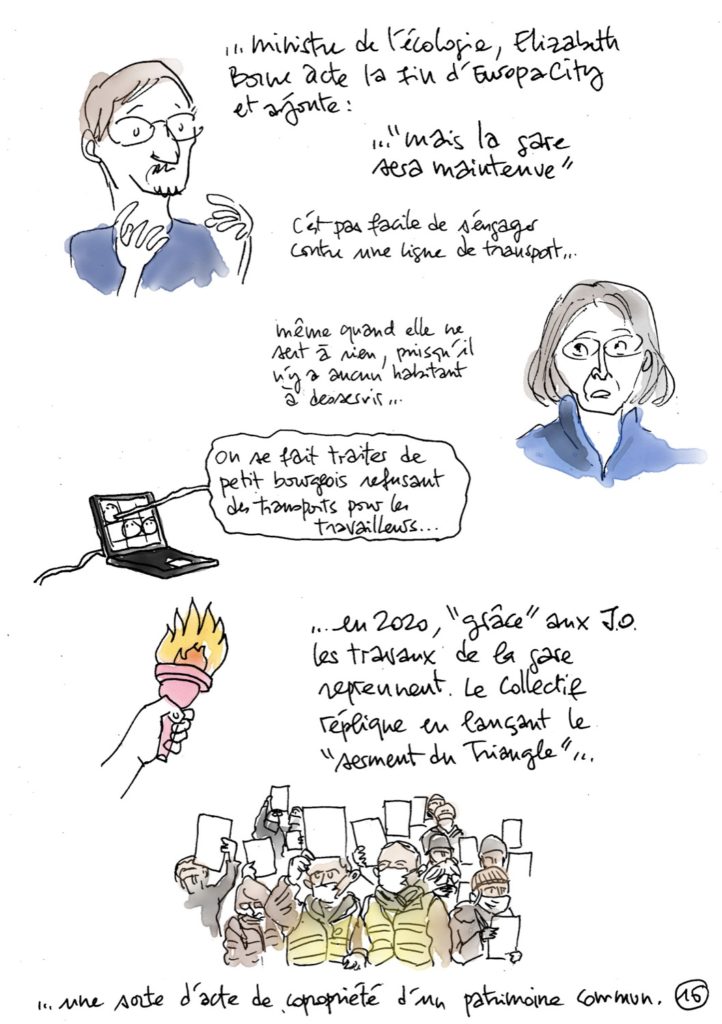 ... ministre de l'écologie, Elizabeth
Borne acte la fin d'EuropaCity
et ajoute :
..."mais la gare
sera maintenue"
C'est pas facile de s'engager
contre une ligne de transport...
même quand elle ne
sert à rien, puisqu'il
n'y a aucun habitant
à desservir...
On se fait traiter de
petit bourgeois refusant
des transports pour les
travailleurs...
... en 2020, "grâce" aux J.O.
les travaux de la gare
reprennent. Le Collectif
réplique en lançant le
"serment du Triangle"...
... une sorte d'acte de copropriété d'un patrimoine commun. 16